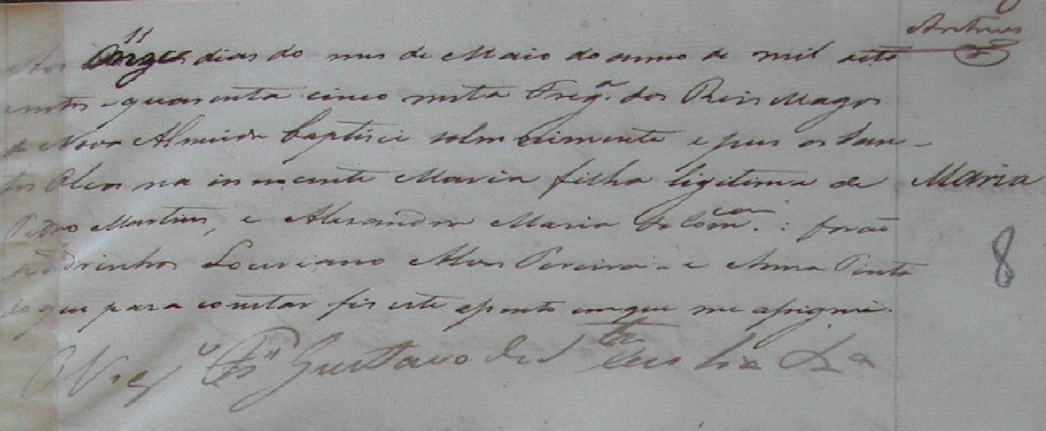 11
Aos Onze dias do mes de Maio do anno de mil oito
centos e quarenta cinco nesta Freg.ª dos Reis Magos
de Nova Almeida baptisei solemnimente e pus os San-
tos Oleos na innocente Maria filha legitima de
Pedro Martins, e Alexandra Maria da Com.cam : forão
Padrinhos Louriano Alves Pereira e Anna Pinto
do que para constar fis este asento em que me asignei.
O Vig.º Fr. Gustavo de S.ta
Maria
8